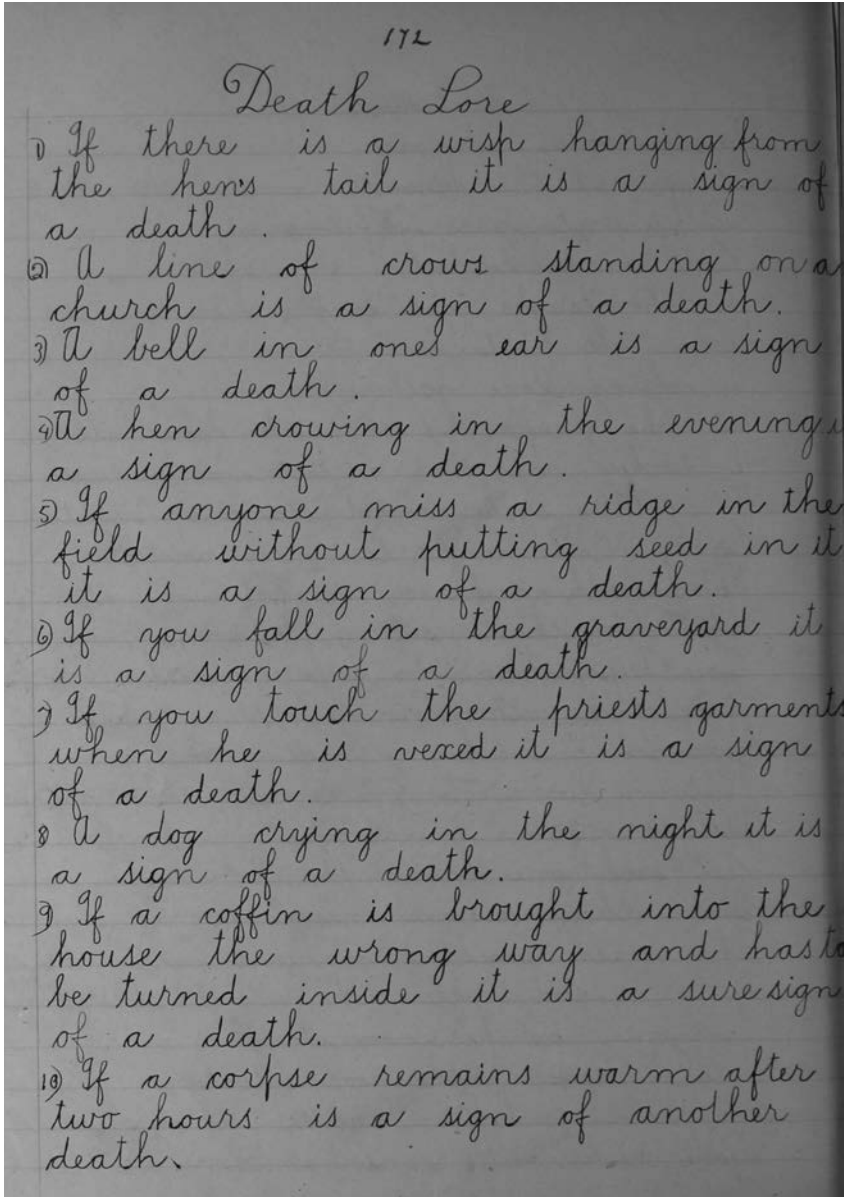 172
Death Lore
1) If there is a wisp hanging from
the hen's tail it is a sign of
a death.
(2) A line of crows standing on a
church is a sign of a death.
3) A bell in ones ear is a sign
of a death.
4) A hen crowing in the evening
a sign of a death.
5) If anyone miss a ridge in the
field without putting seed in it
it is a sign of a death.
6) If you fall in the graveyard it
is a sign of a death.
7) If you touch the priests garments
when he is vexed it is a sign
of a death.
8 A dog crying in the night it is
a sign of a death.
9) If a coffin is brought into the
house the wrong way and has to
be turned inside it is a sure sign
of a death.
10) If a corpse remains warm after
two hours is a sign of another
death.